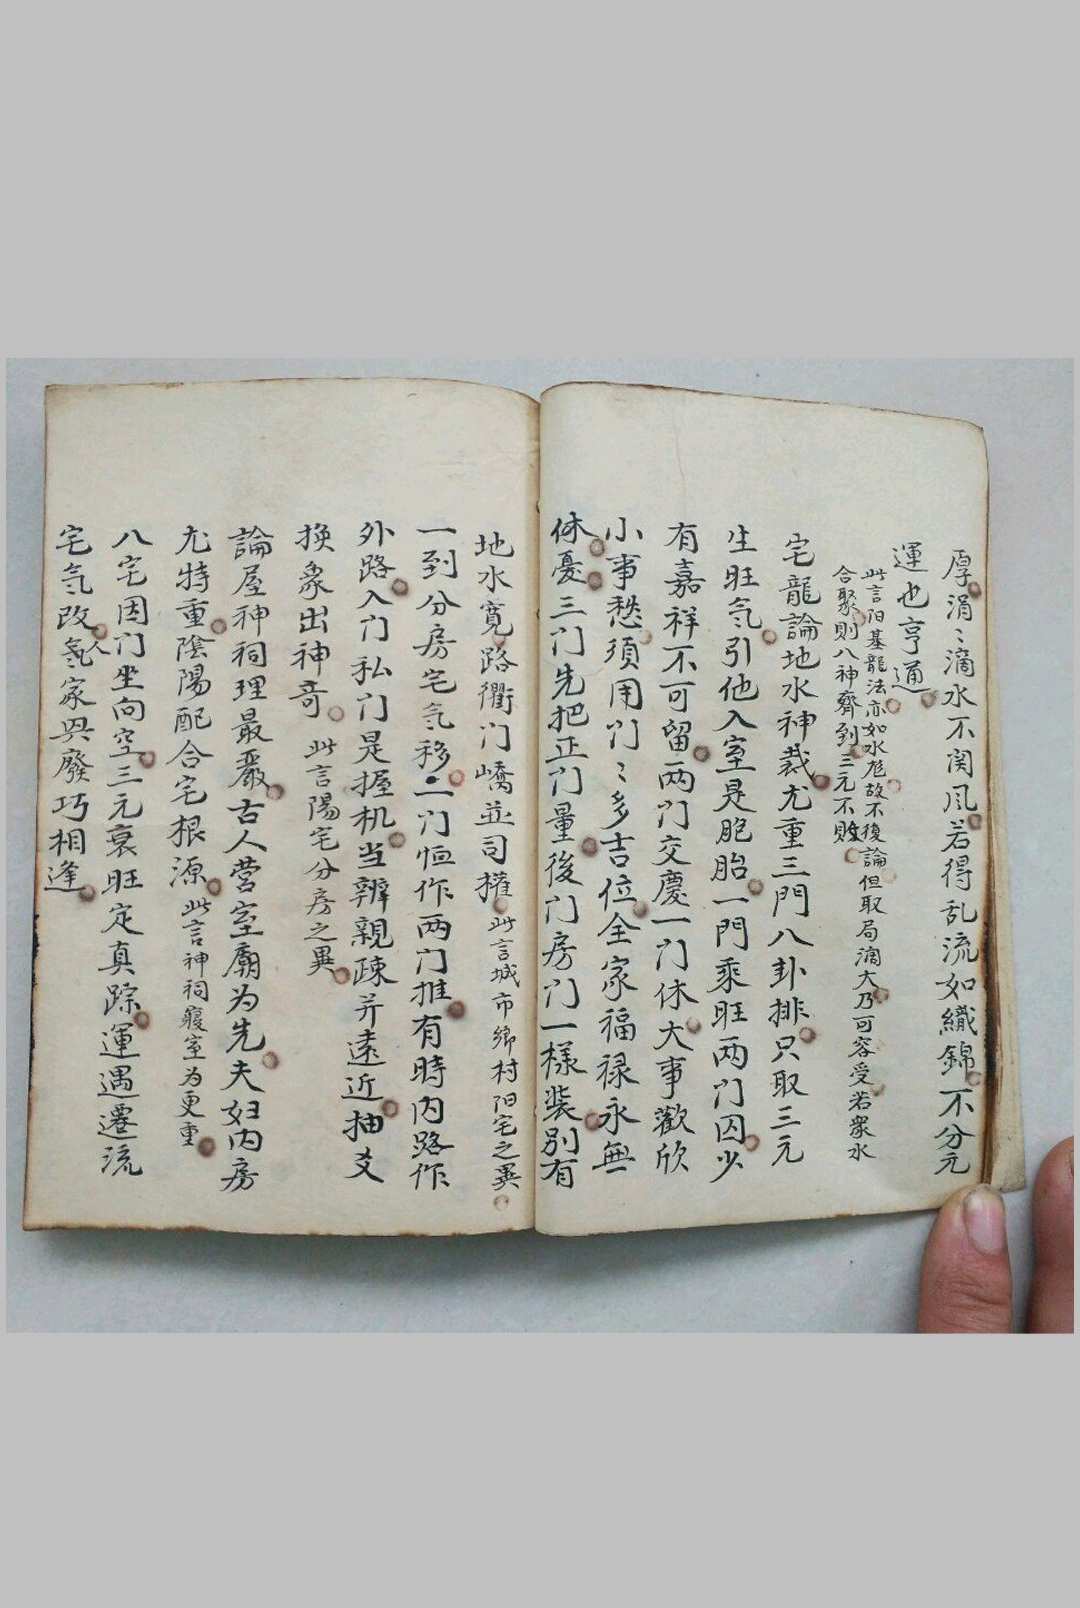 厚涓〻滴水不関风若得乱流如織錦不分元
運也亨通
此言阳基龍法亦如水龙故不復論但取局濶大乃可容受若衆水
合聚則八神齊到三元不敗
宅龍論地水神裁尤重三門八卦排只取三元
生旺气引他入室是胞胎一門乘旺两门囚少
有嘉祥不可留两门交慶一门休大事歡欣
小事愁須用门〻多吉位全家福禄永無
休憂三门先把正门量後门房门一樣装别有
地水寛路衢门嶠並司權此言城市鄉村阳宅之異
一到分房宅气移二门恒作两门推有時内路作
外路入门私门是握机当辨親疎并遠近抽爻
換象出神竒此言陽宅分房之異
論屋神祠理最嚴古人营室廟为先夫妇内房
尤特重陰陽配合宅根源此言神祠寢室为更重
八宅因门坐向空三元衰旺定真踪運遇遷流
宅气改人家興廢巧相逢